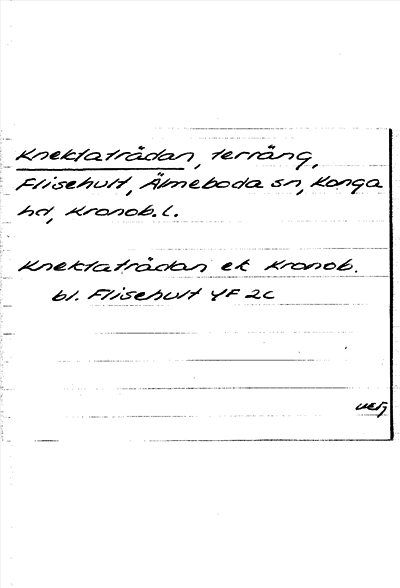 Knektatrådan, terräng,
Flisehult, Älmeboda sn, Konga
hd, Kronob. l.
Knektatrådan ek Kronob.
bl. Flisehult YF 2C